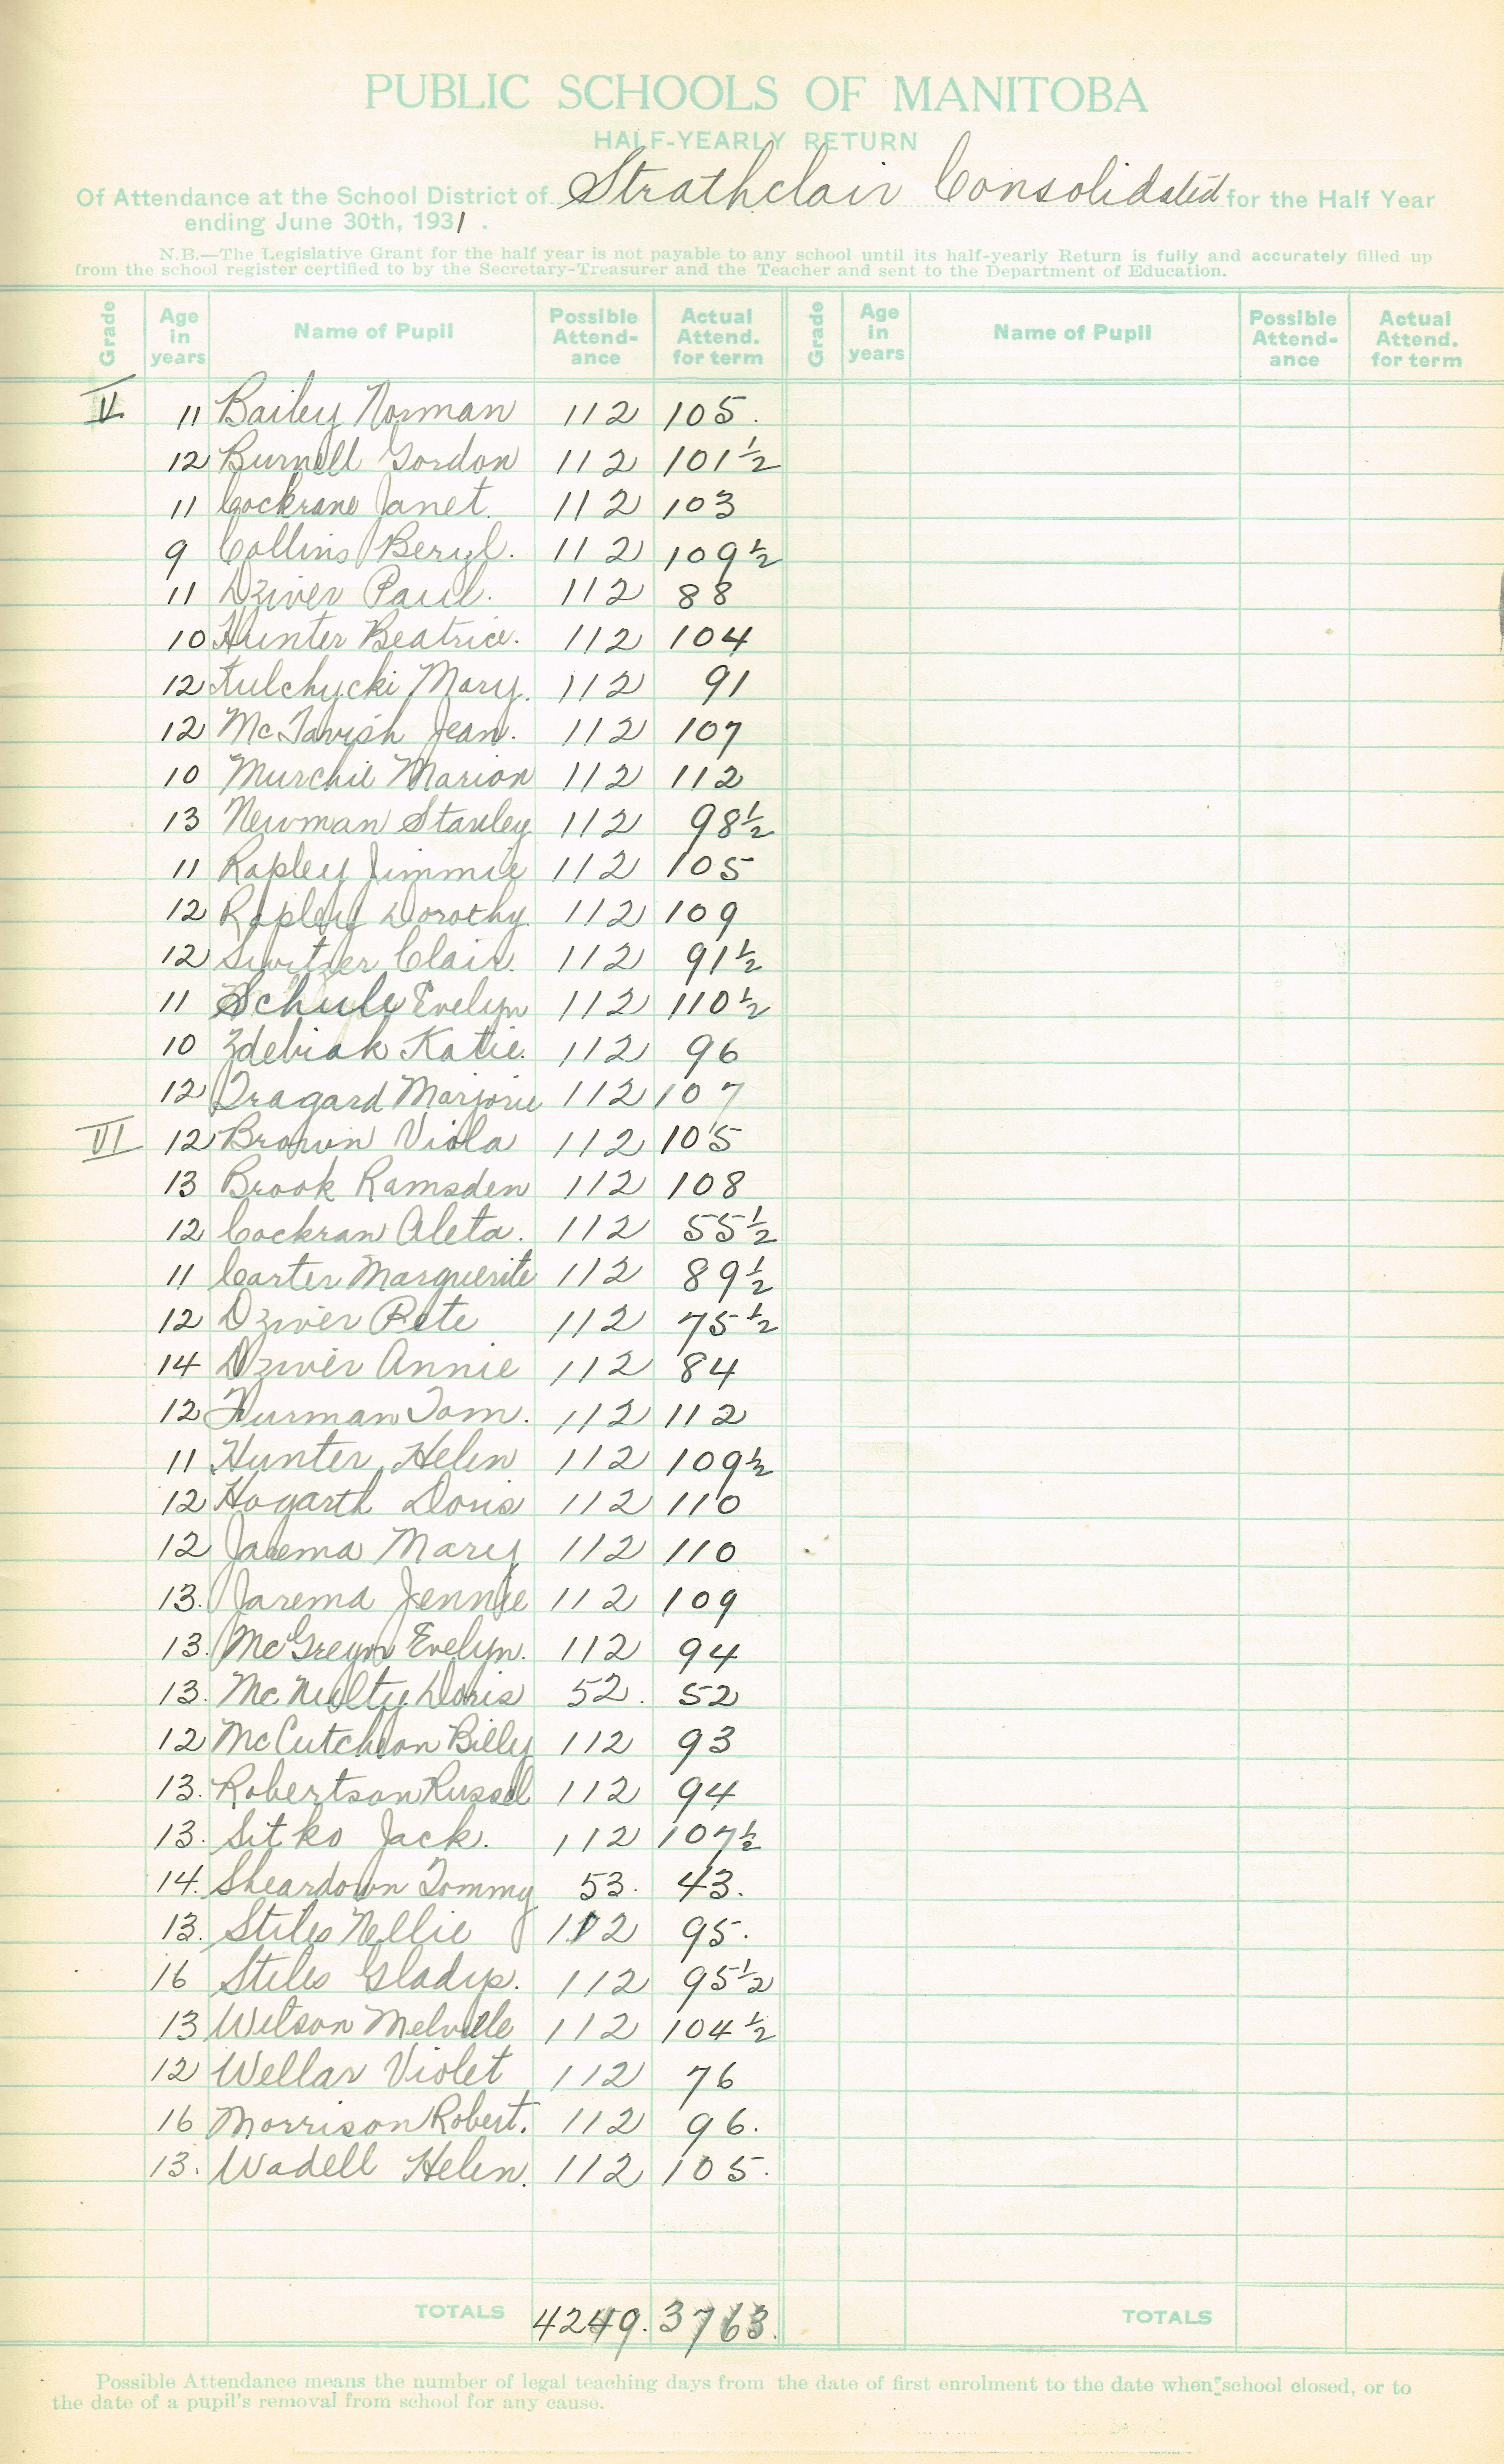 PUBLIC SCHOOLS OF MANITOBA
HALF-YEARLY RETURN
Of Attendance at the School District of Strathclair Consolidated for the Half Year
ending June 30th, 1931.
N.B.—The Legislative Grant for the half year is not payable to any school until its half-yearly Return is fully and accurately filled up
from the school register certified to by the Secretary-Treasurer and the Teacher and sent to the Department of Education.
Grade Age in years Name of Pupil Possible Attend-ance Actual Attend. for term Grade Age in years Name of Pupil Possible Attend-ance Actual Attend. for term
V 11 Bailey Norman 112 105.
12 Burnell Gordon 112 101½
11 Cockrane Janet. 112 103
9 Collins Beryl. 112 109½
11 Dziver Paul. 112 88
10 Hunter Beatrice. 112 104
12 Kulchycki Mary. 112 91
12 McTavish Jean. 112 107
10 Murchie Marion 112 112
13 Newman Stanley 112 98½
11 Rapley Jimmie 112 105
12 Rapley Dorothy. 112 109
12 Switzer Clair. 112 91½
11 Schule Evelyn 112 110½
10 Zdebiak Katie. 112 96
12 Tragard Marjorie 112 107
VI 12 Brown Viola 112 105
13 Brook Ramsden 112 108
12 Cockran Aleta. 112 55½
11 Carter Marguerite 112 89½
12 Dziver Pete 112 75½
14 Dziver Annie 112 84
12 Furman Tom. 112 112
11 Hunter Helen 112 109½
12 Hogarth Doris 112 110
12 Jarema Mary 112 110
13. Jarema Jennie 112 109
13. McGregor Evelyn. 112 94
13. McNulty Doris 52. 52
12 McCutcheon Billy 112 93
13. Robertson Russel 112 94
13. Sitko Jack. 112 107½
14. Sheardown Tommy 53. 43.
13. Stiles Nellie 112 95.
16 Stiles Gladys. 112 95½
13 Wilson Melville 112 104½
12 Wellar Violet 112 76
16 Morrison Robert. 112 96.
13. Wadell Helen. 112 105.
TOTALS 4249. 3763. TOTALS
Possible Attendance means the number of legal teaching days from the date of first enrolment to the date when school closed, or to
the date of a pupil's removal from school for any cause.